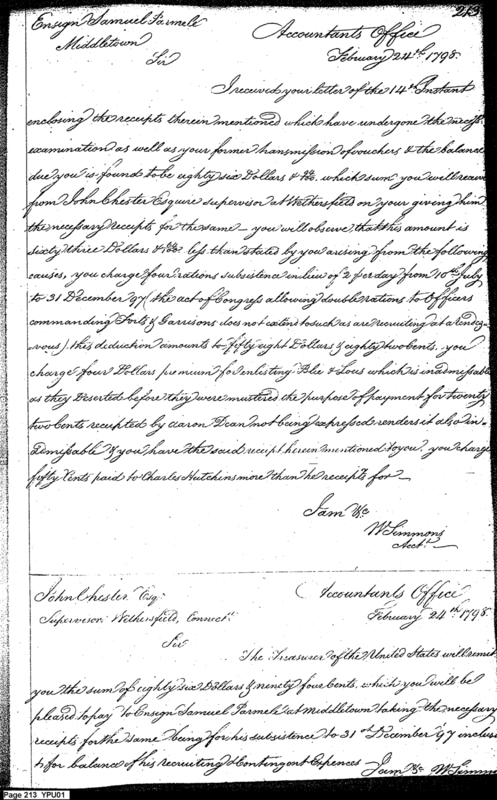 213
Ensign Samuel Parmele
Accountants Office
Middletown
February 24th 1798.
Sir
I received your letter of the 14th Instant
enclosing the receipts therein mentioned which have undergone the
examination as well as your former transmission of vouchers & the balance
due you is found to be eighty six Dollars & which sum you will receive
from John Chester Esquire supervisor at Wethersfield on your giving him
the necessary receipts for the same — you will observe that this amount is
sixty three Dollars & less than stated by you arising from the following
causes, you charge four rations subsistence in lieu of 2 per day from 10th July
to 31 December 97 (the act of Congress allowing double rations to Officers
commanding Forts & Garrisons does not extend to such as are recruiting at a rendez-
vous). this deduction amounts to fifty eight Dollars & eighty two cents. you
charge four Dollars premium for enlisting & which is inadmissable
as they Deserted before they were mustered the purpose of payment for twenty
two cents receipted by aaron Dean not being expressed renders it also in-
admissable & you have the said receipt herein mentioned to you. you charge
fifty Cents paid to Charles Hutchins more than he receipts for —
I am &c
W Simmons
Acct.
John Chester Esq.
Accountants Office
Supervisor. Wethersfield, Connect.
February 24th 1798.
Sir
The Treasurer of the United States will remit
you the sum of eighty six Dollars & ninety four Cents, which you will be
pleased to pay to Ensign Samuel Parmele at Middletown taking the necessary
receipts for the same being for his subsistence to 31st December 97 inclus
& for balance of his recruiting & Contingent Expences I am &c W Simmo
Page 213 YPU01